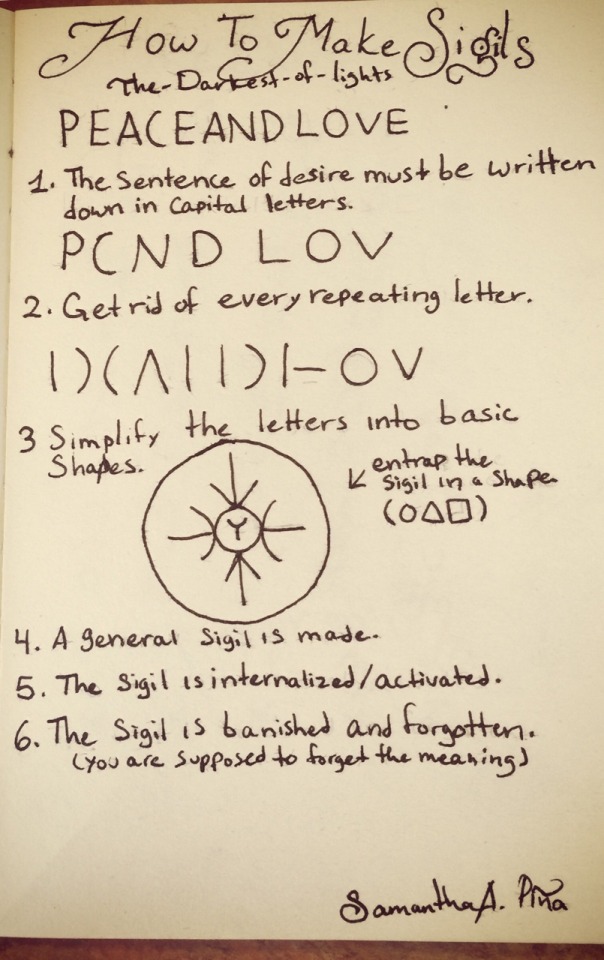 How To Make Sigils
The-Darkest-of-lights
PEACEANDLOVE
1. The Sentence of desire must be written
down in Capital letters.
PCND LOV
2. Get rid of every repeating letter.
|)(Λ||)|-OV
3 Simplify the letters into basic
Shapes.
entrap the
Sigil in a Shape.
(○△□)
Y
4. A general Sigil is made.
5. The Sigil is internalized/activated.
6. The Sigil is banished and forgotten.
(You are supposed to forget the meaning)
Samantha A. Piña